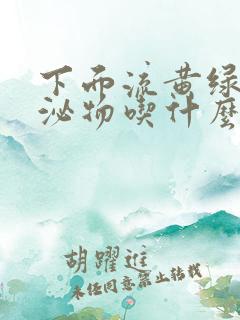 下而流黄绿
泌物喫什麽
胡躍進
未任同意禁止转载